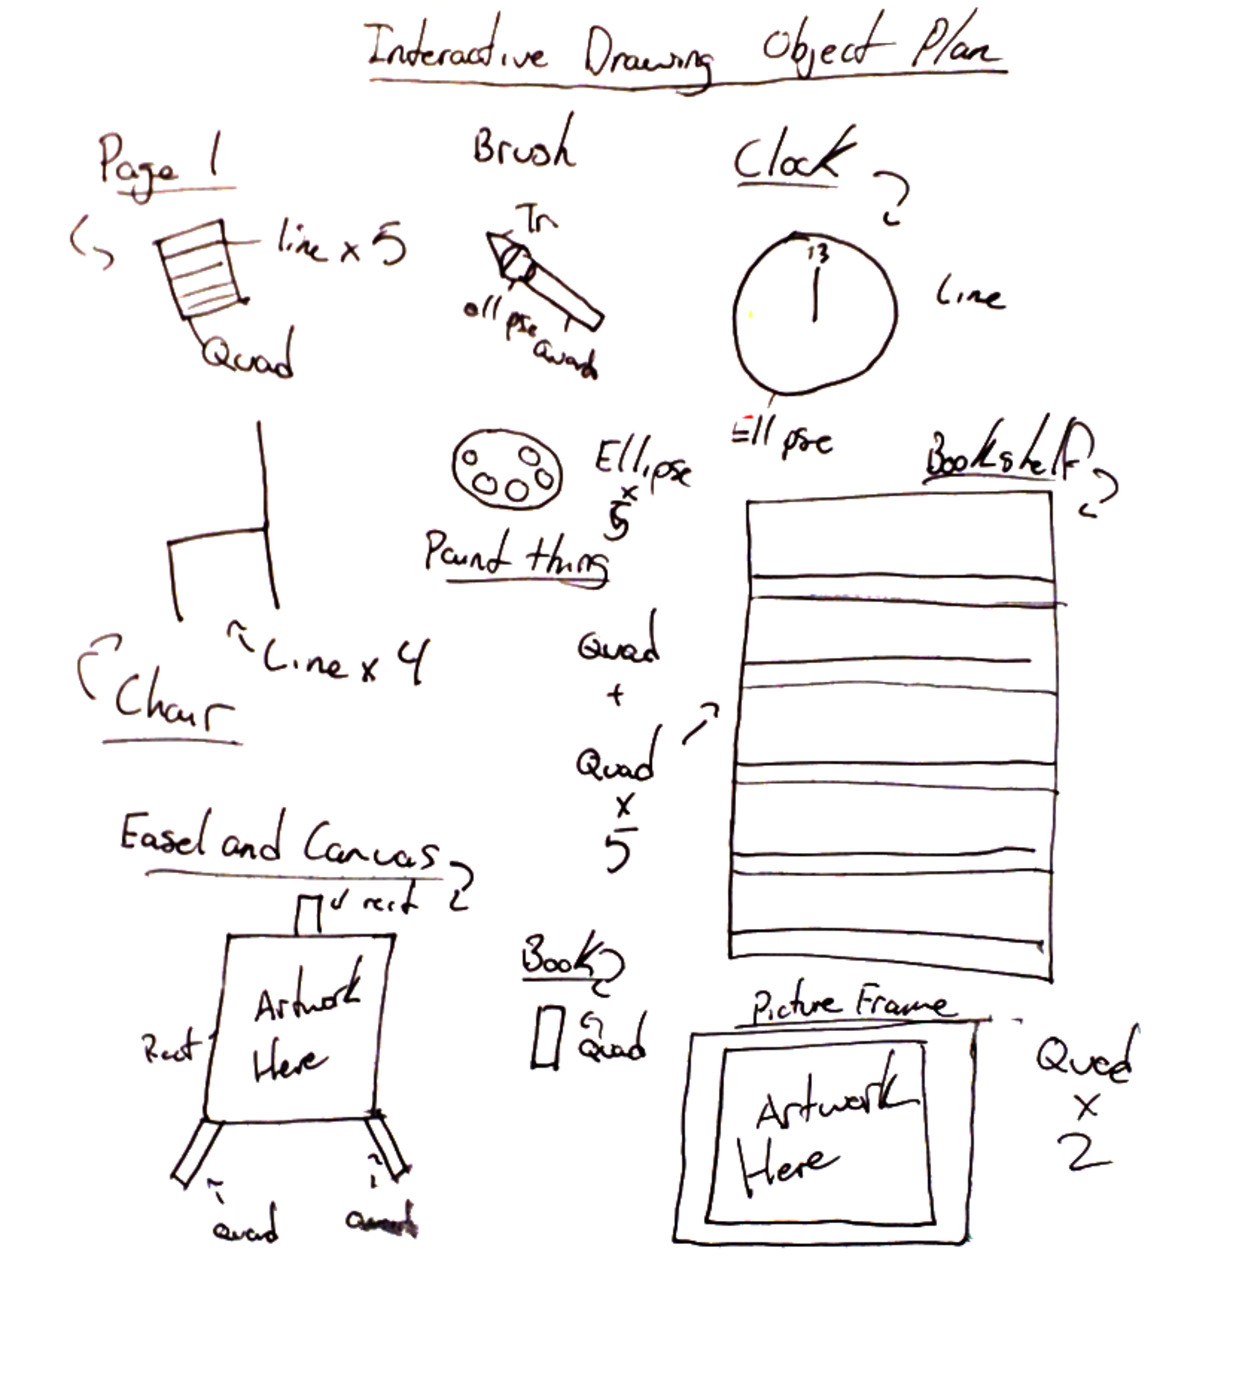 Interactive Drawing Object Plan
Page 1
Brush
Clock
line x 5
Tri
13
Line
ellipse
Quad
Quad
Ellipse
Ellipse
x
5
Bookshelf
Paint thing
Line x 4
Chair
Quad
+
Quad
x
5
Easel and Canvas
rect
Artwork
Here
Rect
Quad
Quad
Book
Quad
Picture Frame
Artwork
Here
Quad
x
2